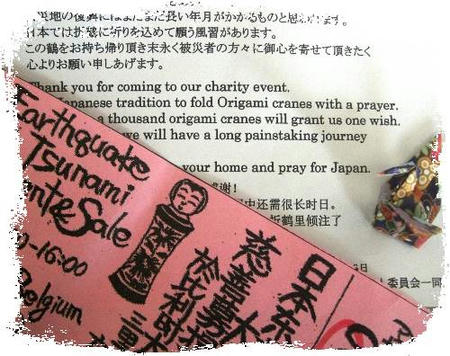 の復興にはまだまだ長い年月がかかるものと思
日本では折鶴に祈りを込めて願う風習があります。
この鶴をお持ち帰り頂き末永く被災者の方々に御心を寄せて頂きたく
心よりお願い申しあげます。
Thank you for coming to our charity event.
Japanese tradition to fold Origami cranes with a prayer.
a thousand origami cranes will grant us one wish.
we will have a long painstaking journey
your home and pray for Japan.
谢!
中还需很长时日。
折鹤里倾注了
日
委員会一同
Earthquake
Tsunami
Sale
-16:00
Belgium
日本
慈善募
比利时